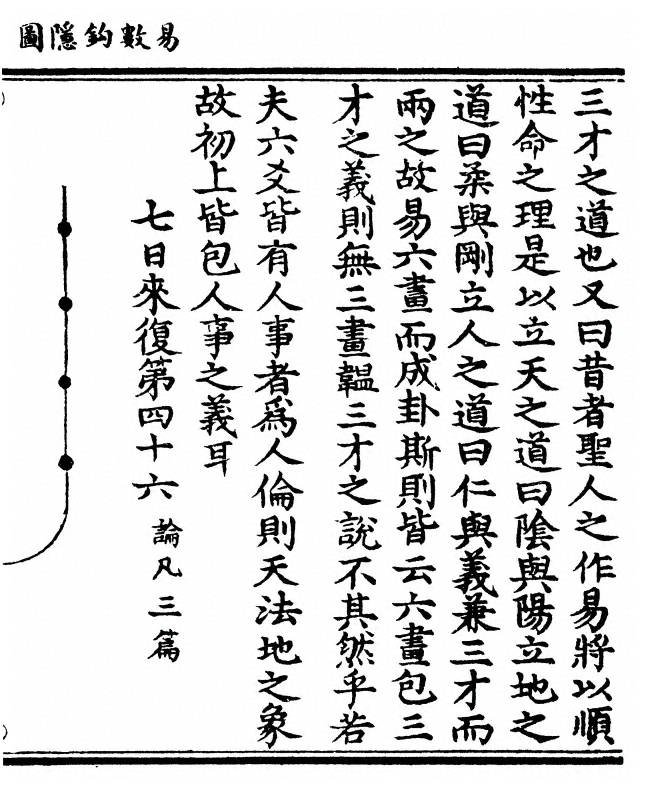 易數鈎隱圖
三才之道也又曰昔者聖人之作易將以順
性命之理是以立天之道曰陰與陽立地之
道曰柔與剛立人之道曰仁與義兼三才而
兩之故易六畫而成卦斯則皆云六畫包三
才之義則無三畫韞三才之說不其然乎若
夫六爻皆有人事者爲人倫則天法地之象
故初上皆包人事之義耳
七日來復第四十六 論凡三篇